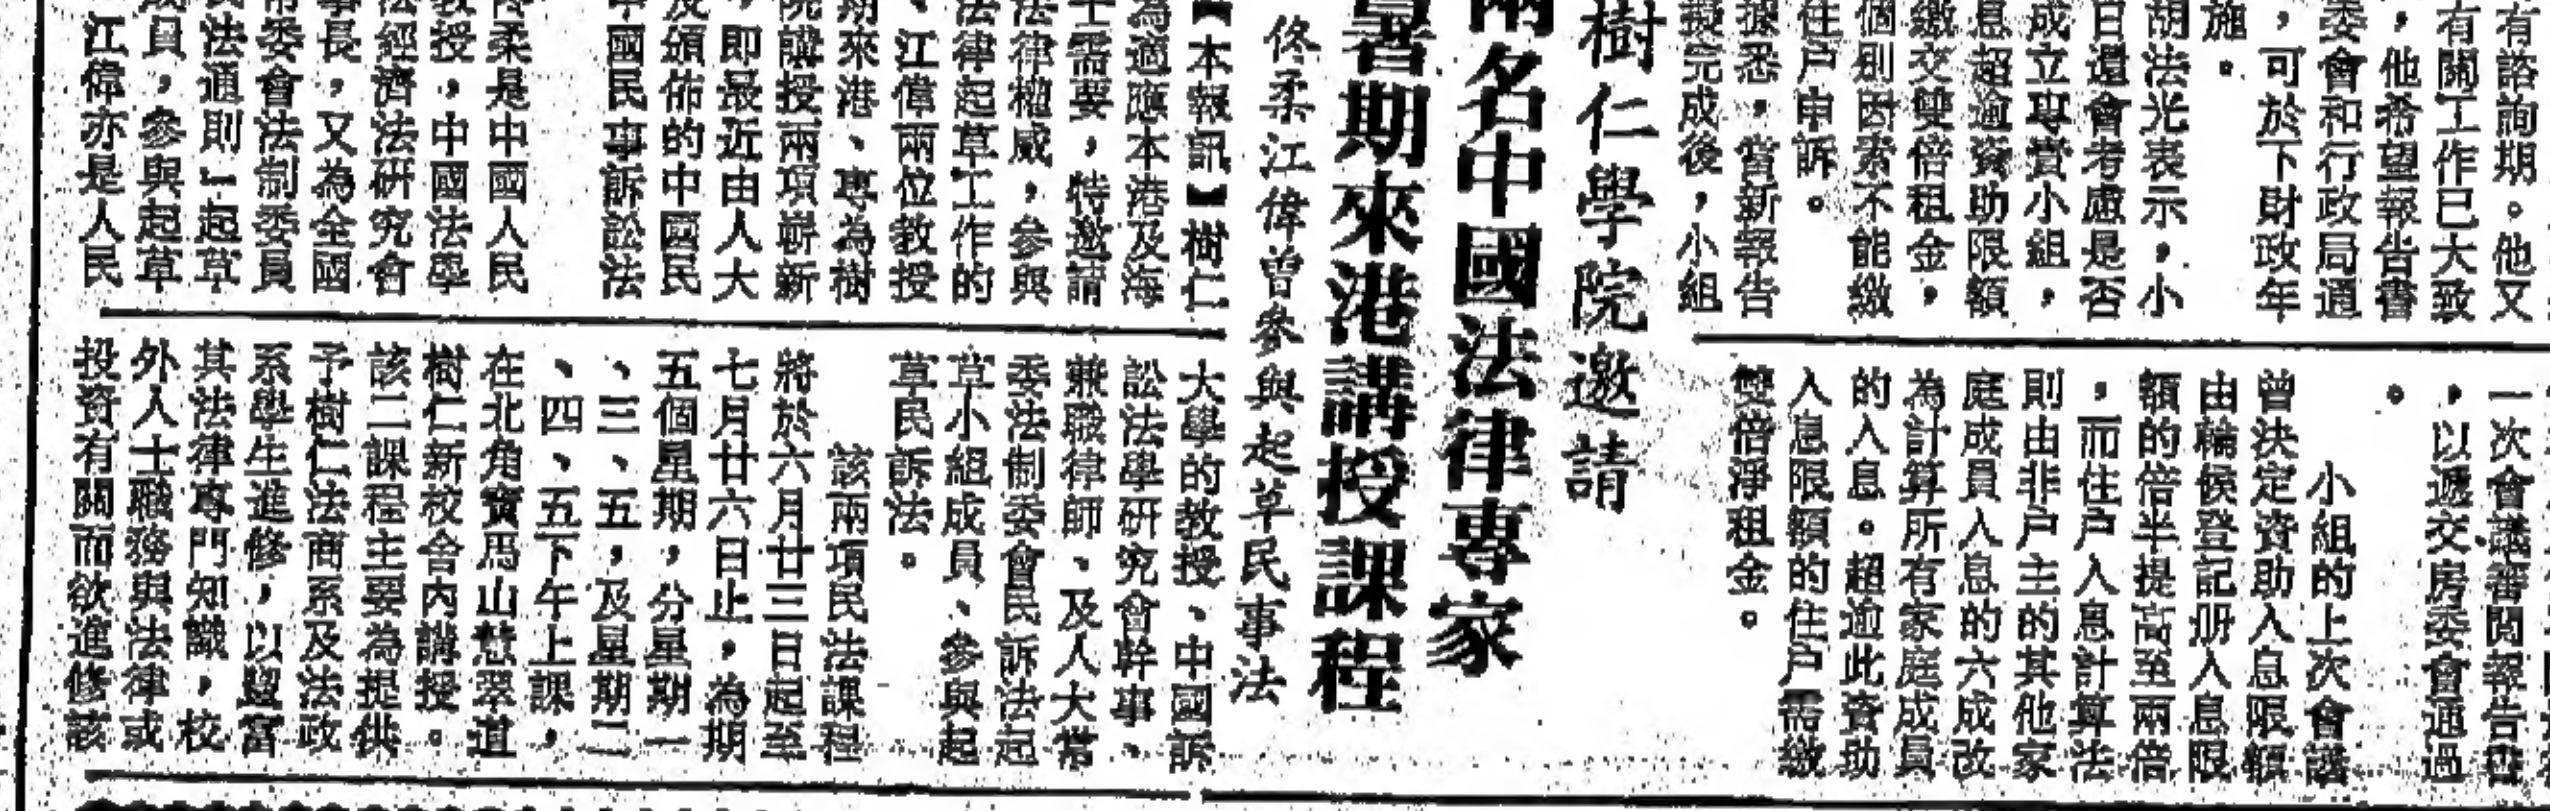 有諮詢期。他又
有關工作已大致
，他希望報告書
委會和行政局通
，可於下財政年
施。
胡法光表示，小
日還會考慮是否
成立專責小組，
息超逾資助限額
繳交雙倍租金，
個別因素不能繳
住户申訴。
據悉，當新報告
擬完成後，小組
一次會議審閱報告書
，以遞交房委會通過
。
小組的上次會議
曾決定資助入息限額
由輪候登記册入息限
額的倍半提高至兩倍
，而住户入息計算法
則由非户主的其他家
庭成員入息的六成改
為計算所有家庭成員
的入息。超逾此資助
入息限額的住户需繳
雙倍淨租金。
樹仁學院邀請
兩名中國法律專家
暑期來港講授課程
佟柔江偉曾參與起草民事法
【本報訊】樹仁
為適應本港及海
士需要，特邀請
法律權威，參與
法律起草工作的
、江偉兩位教授
期來港、專為樹
院講授兩項嶄新
，即最近由人大
及頒佈的中國民
中國民事訴訟法
佟柔是中國人民
教授，中國法學
法經濟法研究會
事長，又為全國
常委會法制委員
民法通則」起草
成員，參與起草
江偉亦是人民
大學的教授、中國訴
訟法學研究會幹事、
兼職律師、及人大常
委法制委會民訴法起
草小組成員、參與起
草民訴法。
該兩項民法課程
將於六月廿三日起至
七月廿六日止，為期
五個星期，分星期一
、三、五，及星期二
、四、五下午上課，
在北角寶馬山慧翠道
樹仁新校舍內講授。
該二課程主要為提供
予樹仁法商系及法政
系學生進修，以豐富
其法律專門知識，校
外人士職務與法律或
投資有關而欲進修該